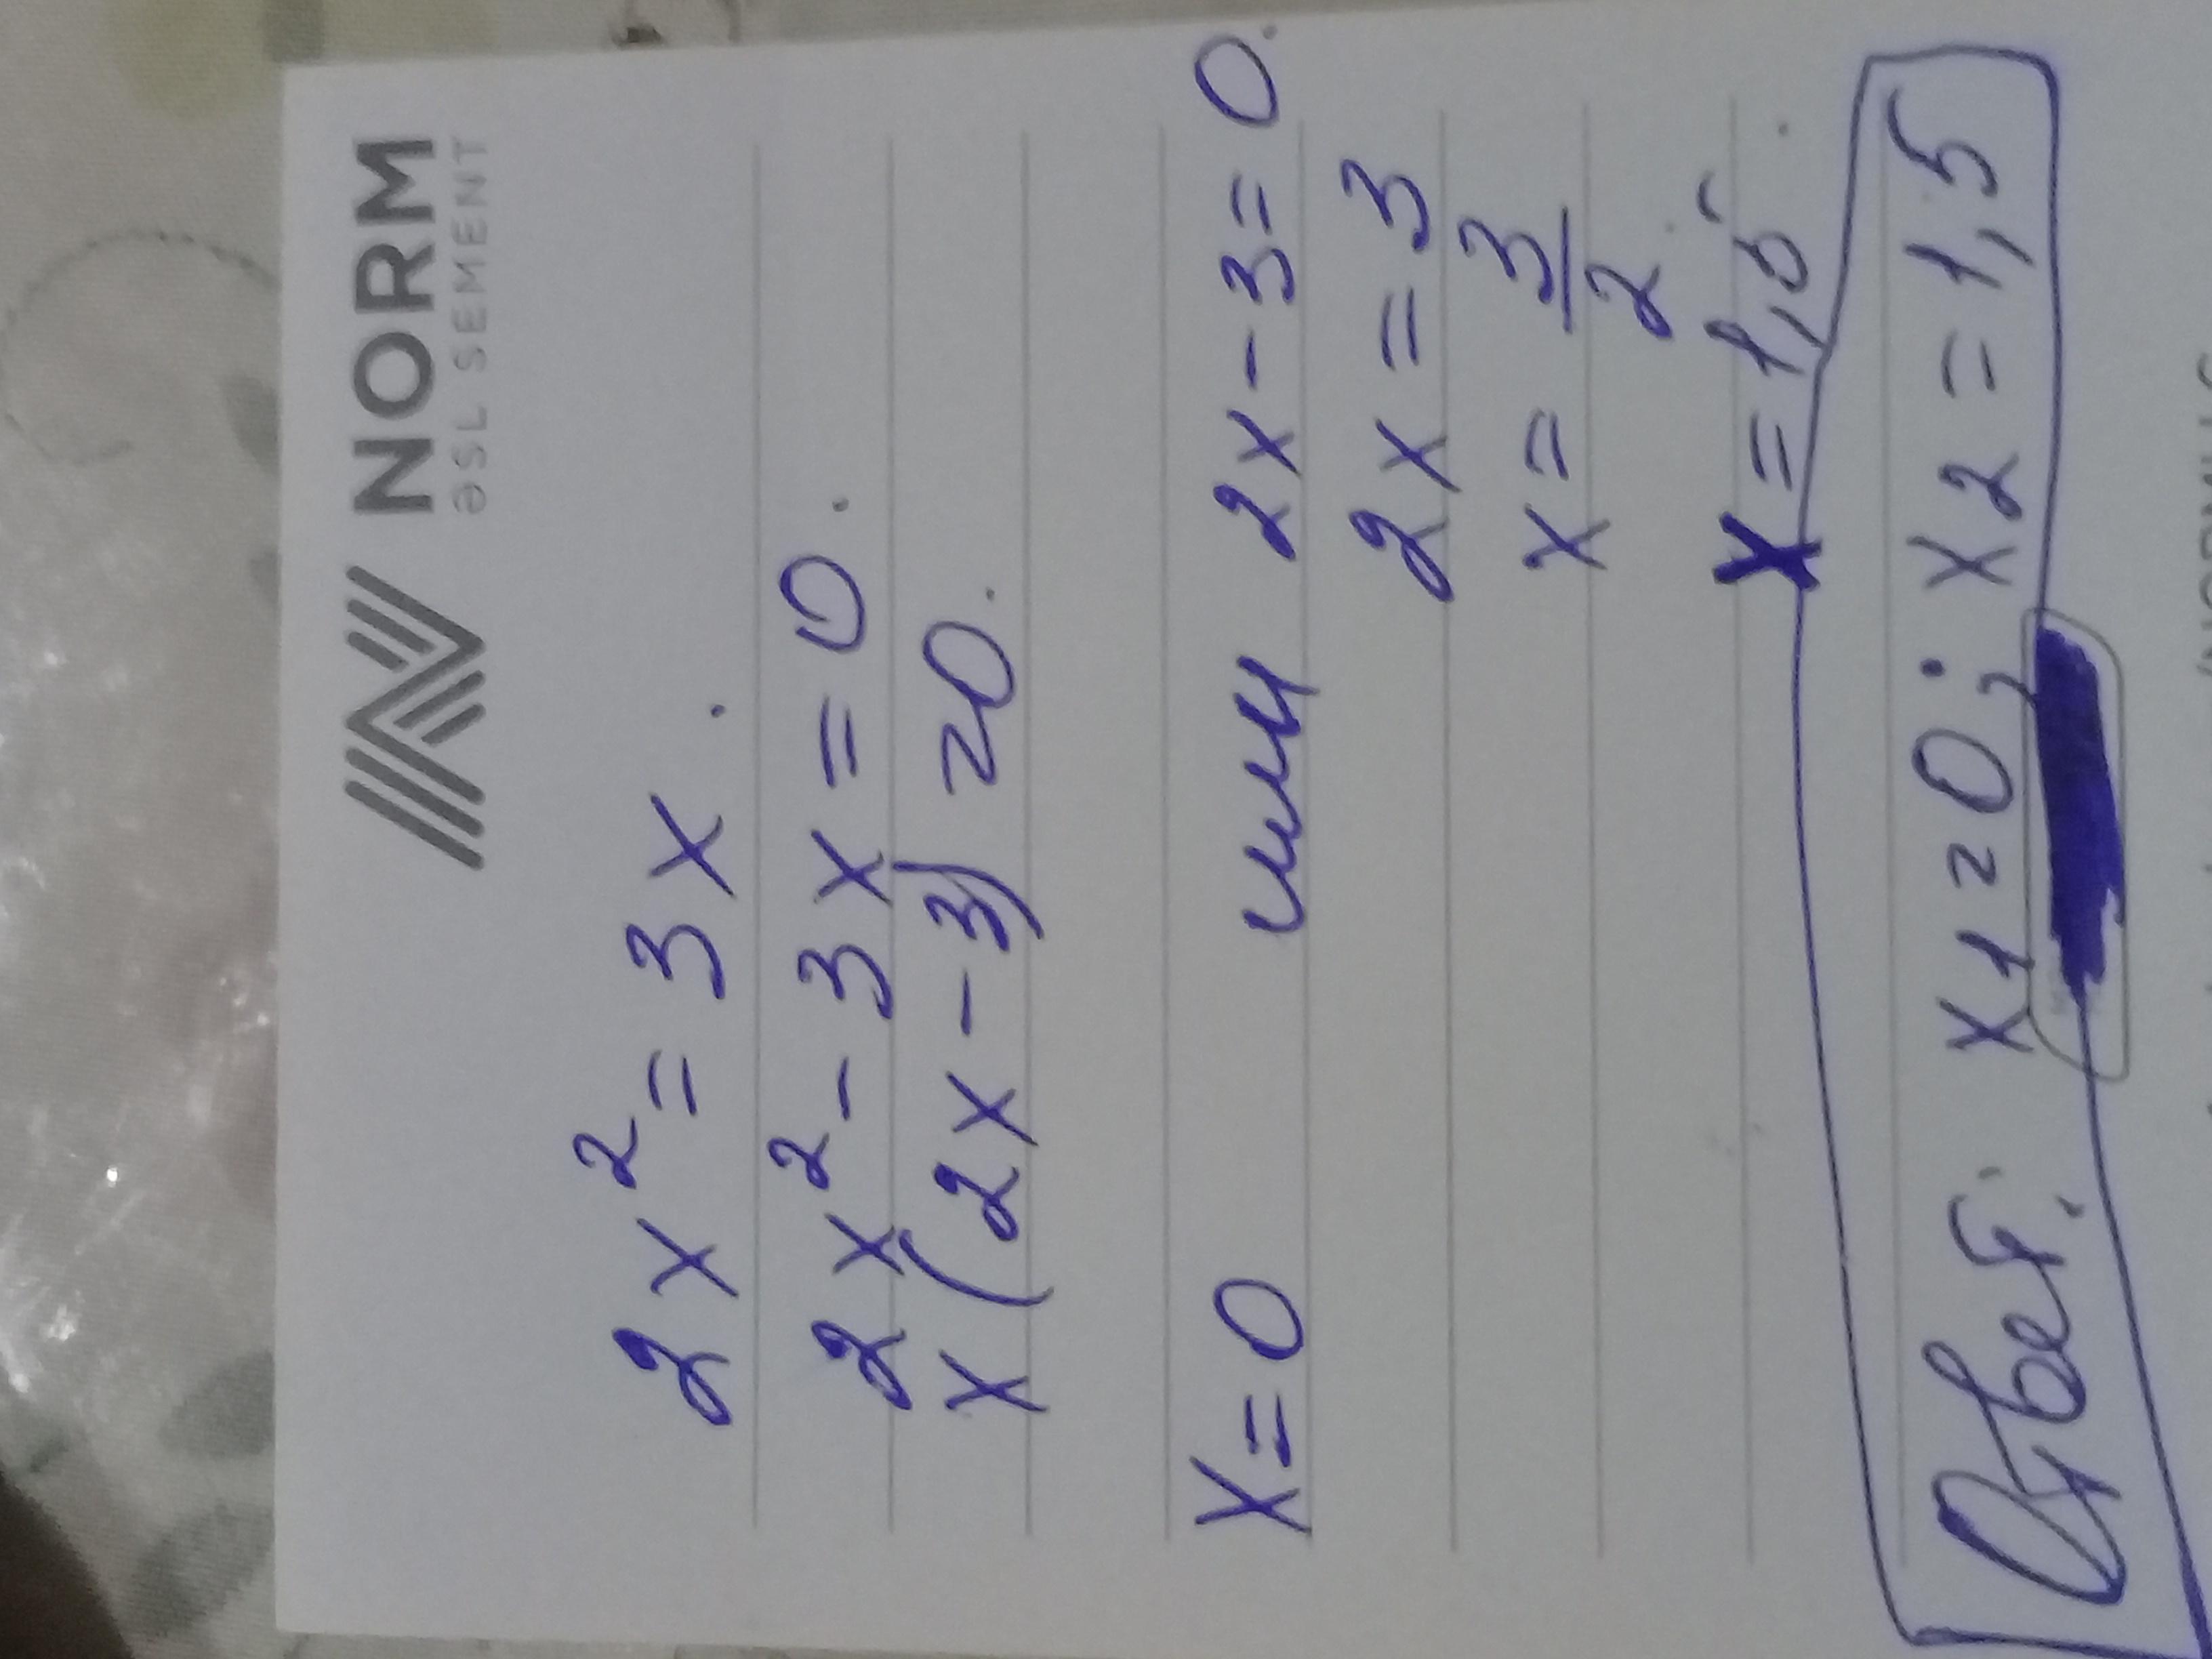 NORM
ƏSL SEMENT
2x² = 3x.
2x² - 3x = 0.
x(2x - 3) = 0.
x = 0 или 2x - 3 = 0.
2x = 3
x = 3/2
x = 1,5.
Ответ: x1 = 0; x2 = 1,5